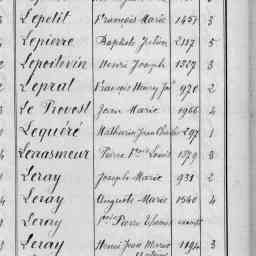 Lepetit François Marie 1457 3
Lepierre Baptiste Julien 2117 5
Lepoitevin Henri Joseph 1329 3
Leprat François Henry Jph 920 2
Le Provost Jean Marie 1966 4
Lequéré Mathurin Jean Charles 297 1
Lerrasmeur Pierre Louis 1379 3
Leray Joseph Marie 931 2
Leray Auguste Marie 1540 4
Leray Pierre
Leray Henri Jean Marie 1194 3